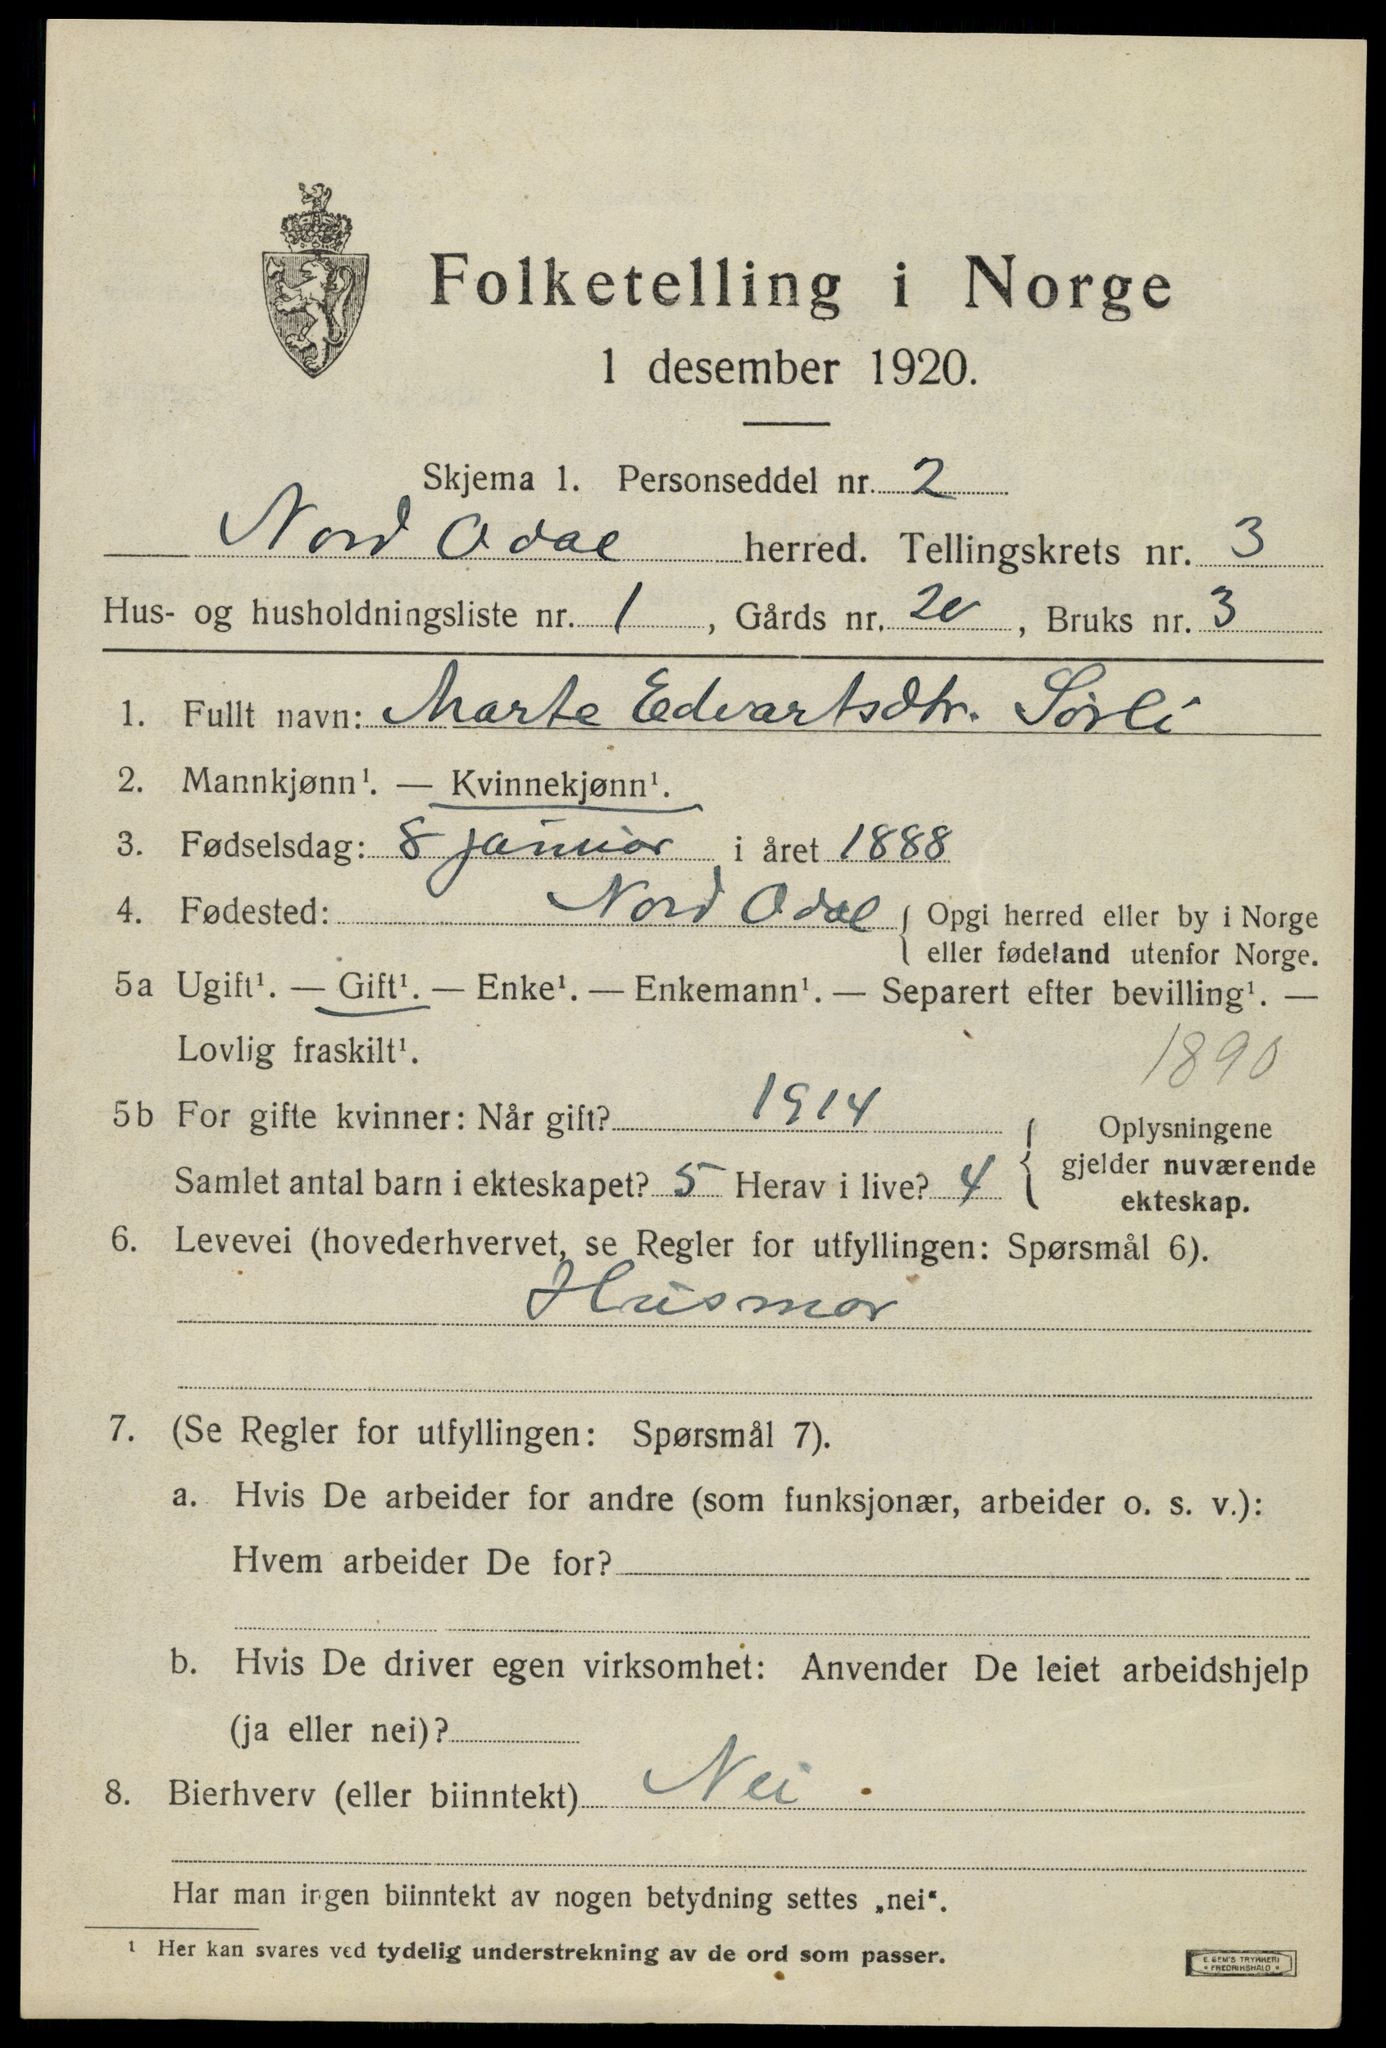 Folketelling i Norge
1 desember 1920.
Skjema 1. Personseddel nr. 2
Nord Odal herred. Tellingskrets nr. 3
Hus- og husholdningsliste nr. 1, Gårds nr. 20, Bruks nr. 3
1. Fullt navn: Marte Edvartsdtr. Sörli
2. Mannkjønn¹. — Kvinnekjønn¹.
3. Fødselsdag: 8 januar i året 1888
4. Fødested: Nord Odal { Opgi herred eller by i Norge
eller fødeland utenfor Norge.
5a Ugift¹. — Gift¹. — Enke¹. — Enkemann¹. — Separert efter bevilling¹. —
Lovlig fraskilt¹.
1890
5b For gifte kvinner: Når gift? 1914
Samlet antal barn i ekteskapet? 5 Herav i live? 4
{ Oplysningene
gjelder nuværende
ekteskap.
6. Levevei (hovederhvervet, se Regler for utfyllingen: Spørsmål 6).
Husmor
7. (Se Regler for utfyllingen: Spørsmål 7).
a. Hvis De arbeider for andre (som funksjonær, arbeider o. s. v.):
Hvem arbeider De for?
b. Hvis De driver egen virksomhet: Anvender De leiet arbeidshjelp
(ja eller nei)?
8. Bierhverv (eller biinntekt) Nei
Har man ingen biinntekt av nogen betydning settes „nei“.
¹ Her kan svares ved tydelig understrekning av de ord som passer.
E. SEM'S TRYKKERI
• FREDRIKSHALD •